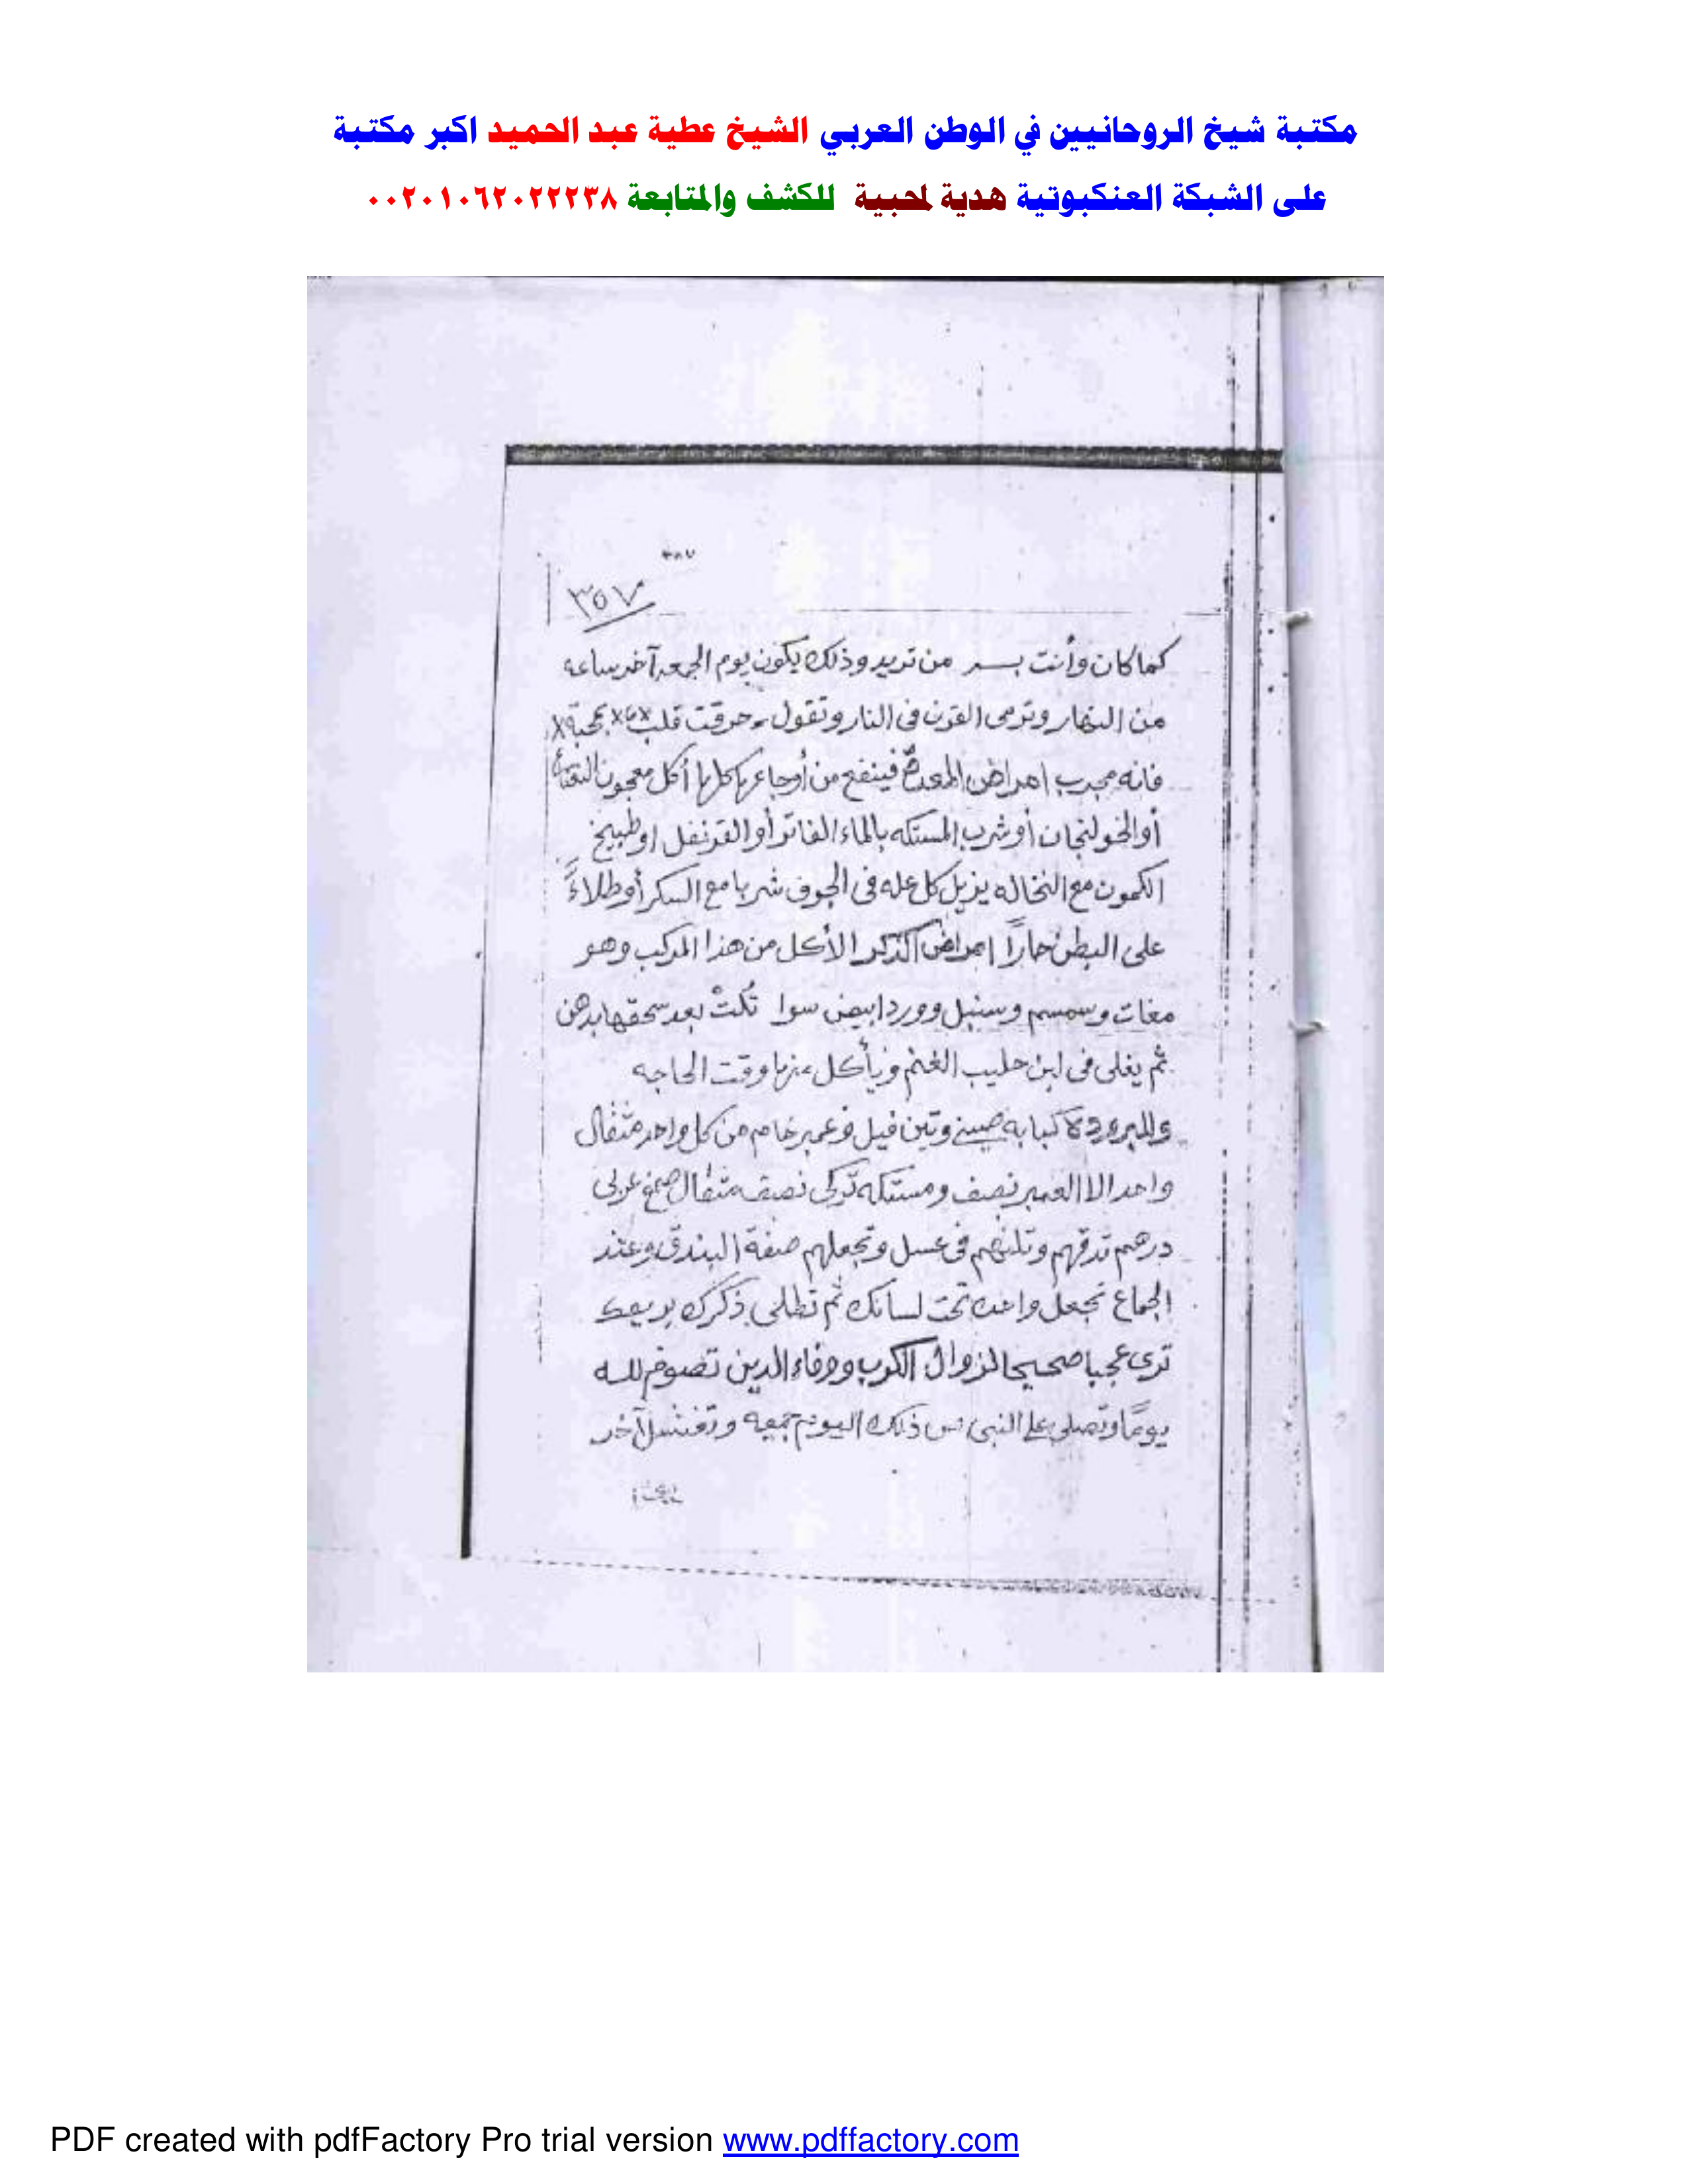 مكتبة شيخ الروحانيين في الوطن العربي الشيخ عطية عبد الحميد اكبر مكتبة
على الشبكة العنكبوتية هدية لمحبية للكشف والمتابعة ٠٠٢٠١٠٦٢٠٢٢٢٣٨
٣٨٧
٣٥٧
كما كان وأنت بسر من تريد وذلك يكون يوم الجمعه آخر ساعه
من النهار وترمى القرن فى النار وتقول حرقت قلب بمحبة
فانه مجرب امراض المعدة فينفع من أوجاعها كلها أكل معجون النعناع
أو الخولنجان أو شرب المستكه بالماء الفاتر أو القرنفل او طبيخ
الكمون مع النخاله يزيل كل عله فى الجوف شربا مع السكر أو طلاءً
على البطن حارًا امراض الذكر الأكل من هذا المركب وهو
مغات وسمسم وسنبل وورد ابيض سوا تُلتْ بعد سحقها بدهن
ثم يغلى فى لبن حليب الغنم ويأكل منها وقت الحاجه
وللبرودة كبابه صينى وتين فيل وعمبر خام من كل واحد مثقال
واحد الا العمبر نصف ومستكه تركى نصف مثقال صمغ عربى
درهم تدقهم وتلتهم فى عسل وتجعلهم صفة البندق وعند
الجماع تجعل واحده تحت لسانك ثم تطلى ذكرك بريقك
ترى عجبا صحيحا لزوال الكرب ووفاء الدين تصوم لله
يومًا وتصلى على النبى ص ذلك اليوم جمعه وتغتسل آخر
PDF created with pdfFactory Pro trial version www.pdffactory.com